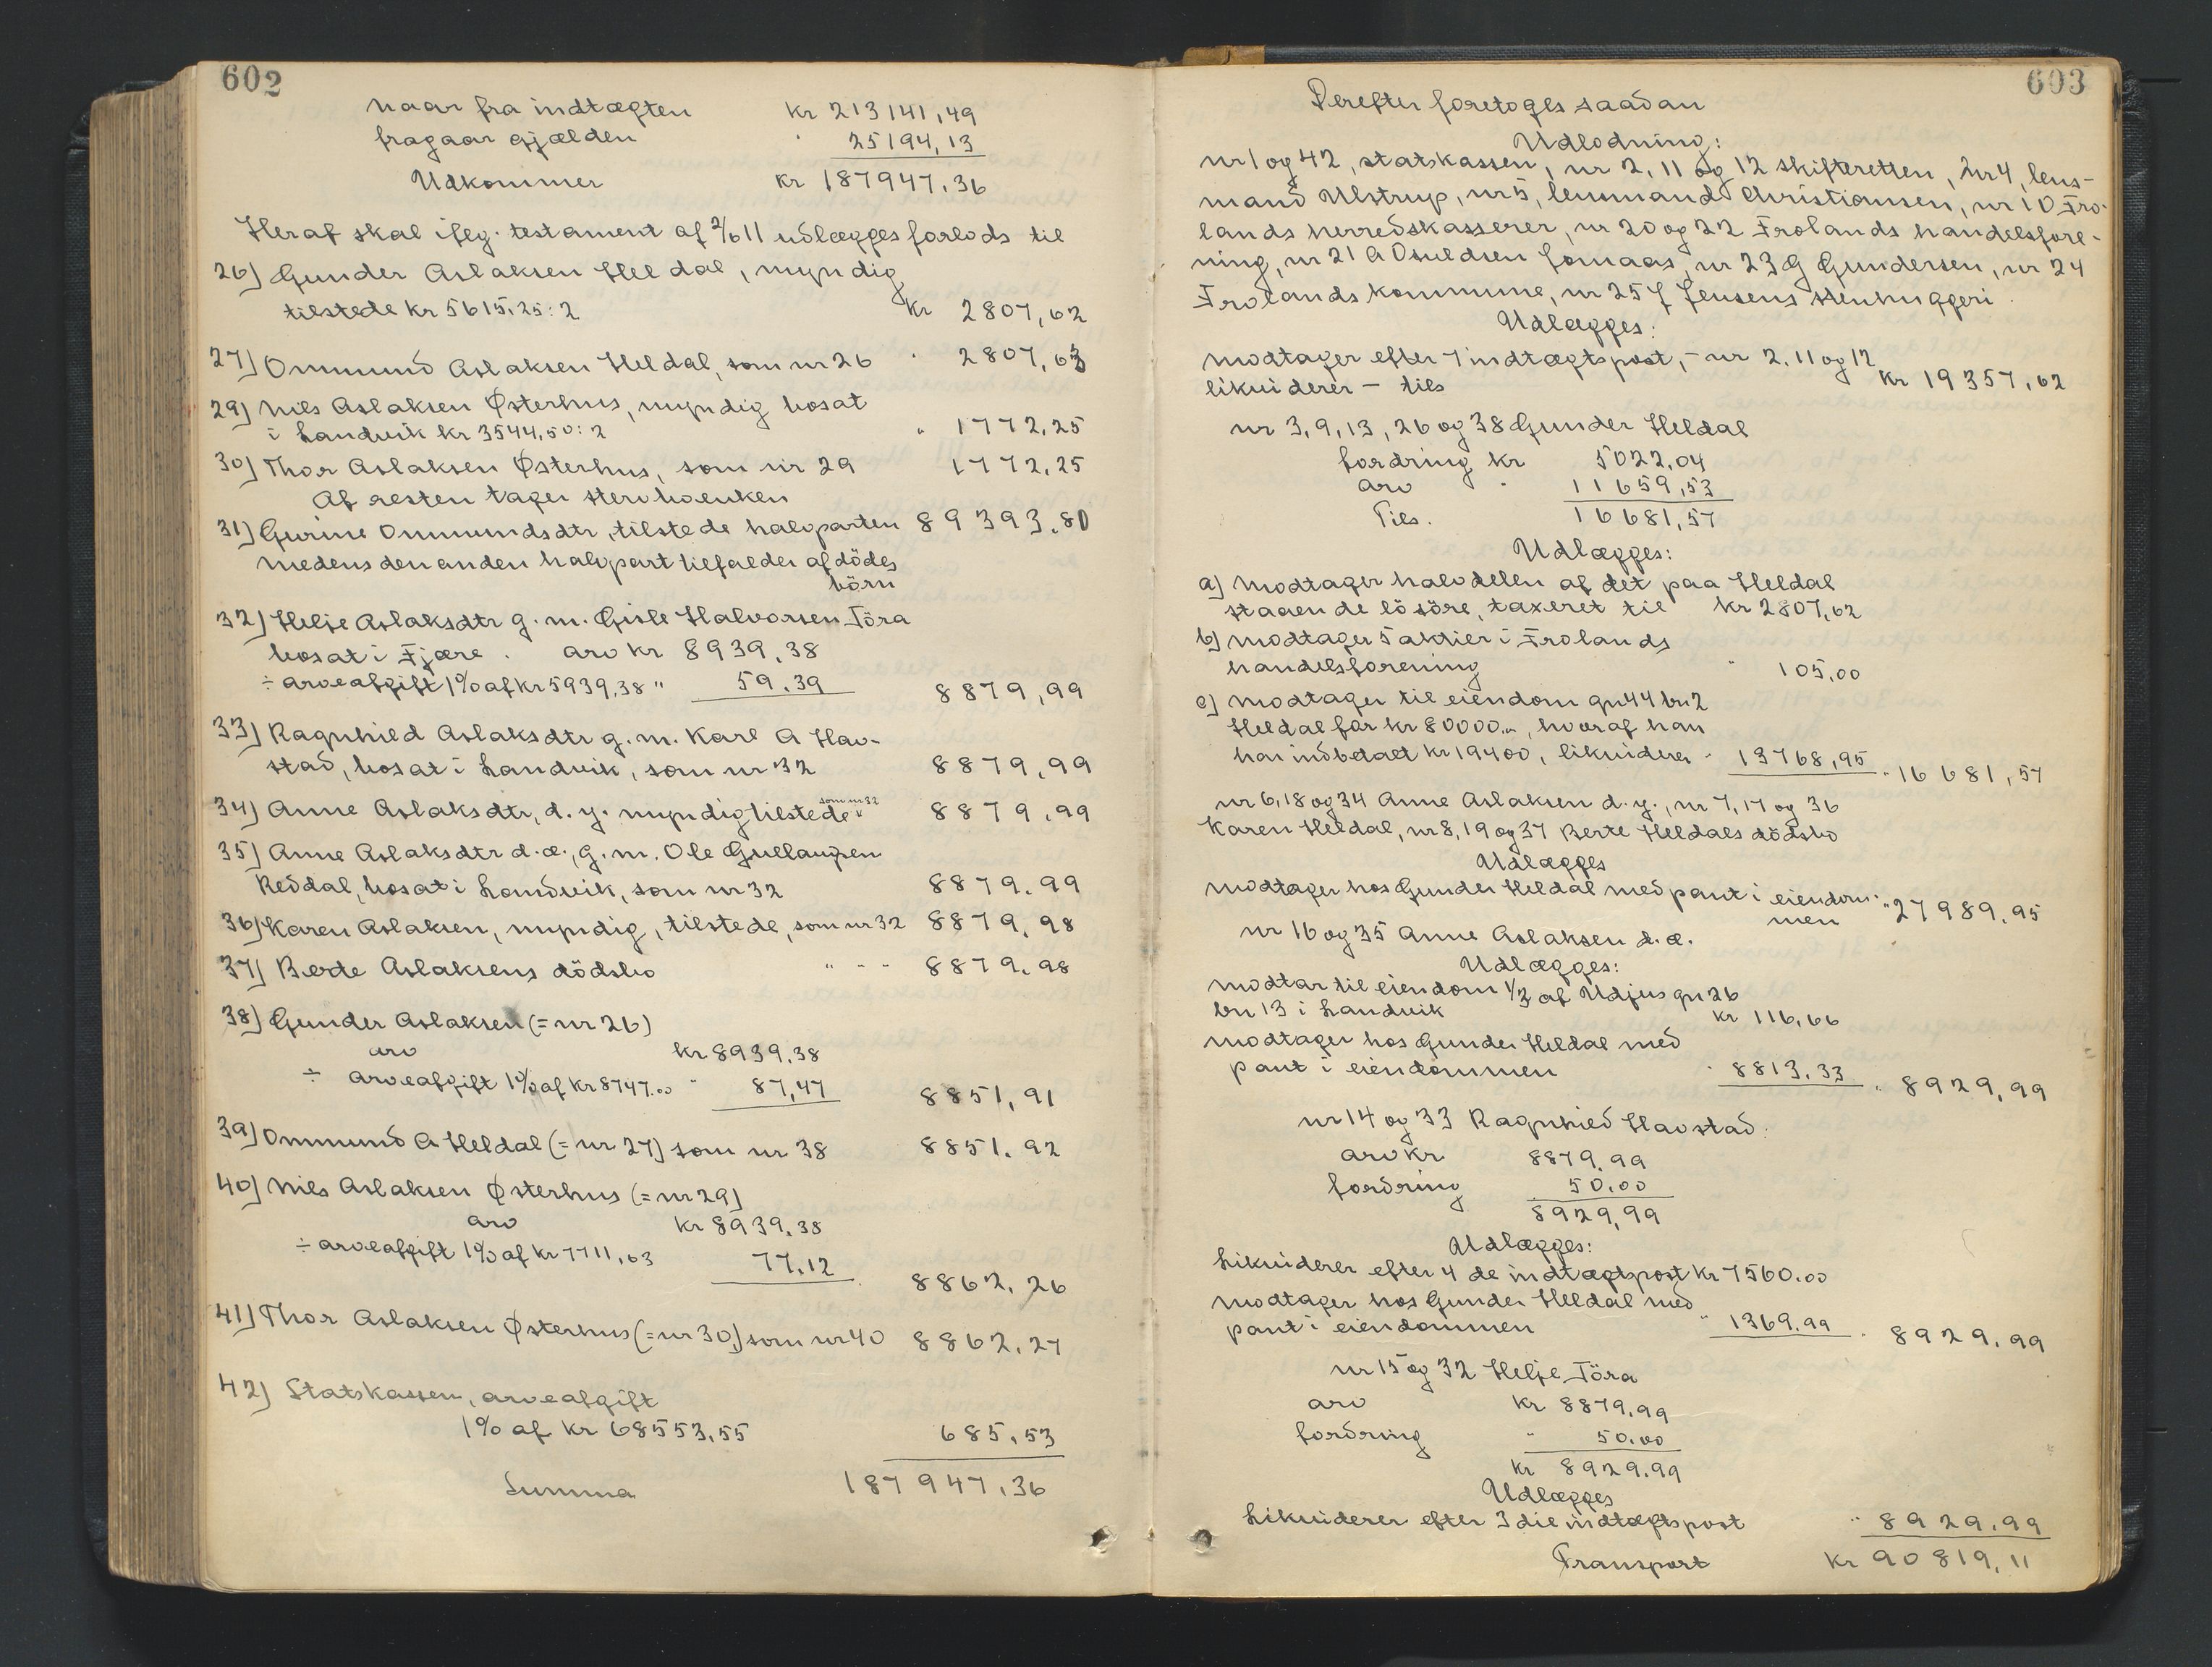 602
naar fra indtægten kr 213141,49
fragaar gjælden " 25194,13
Udkommer kr 187947,36
Heraf skal iføg. testament af 2/6 11 udlægges forlods til
26) Gunder Aslaksen Heldal, myndig
tilstede kr 5615,25:2 kr 2807,62
27) Ommund Aslaksen Heldal, som nr 26 " 2807,63
29) Nils Aslaksen Østerhus, myndig bosat
i Landvik kr 3544,50:2 " 1772,25
30) Thor Aslaksen Østerhus, som nr 29 1772,25
Af resten tager stervboenken
31) Gurine Ommundsdtr, tilstede halvparten 89393,80
medens den anden halvpart tilfalder afdödes
börn
32) Helje Aslaksdtr g. m. Gisle Halvorsen Töra
bosat i Fjære . arv kr 8939,38
÷ arveafgift 1% af kr 5939,38 " 59,39 8879,99
33) Ragnhild Aslaksdtr g. m. Karl A Hav-
stad, bosat i Landvik, som nr 32 8879,99
34) Anne Aslaksdtr, d. y. myndig tilstede som nr 32 8879,99
35) Anne Aslaksdtr d. æ., g. m. Ole Gullaugsen
Reddal, bosat i Landvik, som nr 32 8879,99
36) Karen Aslaksen, myndig, tilstede, som nr 32 8879,98
37) Berte Aslaksens dödsbo " - - 8879,98
38) Gunder Aslaksen (= nr 26)
arv kr 8939,38
÷ arveafgift 1% af kr 8747.00 " 87,47 8851,91
39) Ommund A Heldal (= nr 27) som nr 38 8851,92
40) Nils Aslaksen Østerhus (= nr 29)
arv kr 8939,38
÷ arveafgift 1% af kr 7711,63 77,12 8862,26
41) Thor Aslaksen Østerhus (= nr 30) som nr 40 8862,27
42) Statskassen, arveafgift
1% af kr 68553,55 685,53
Summa 187947,36
603
Derefter foretoges saadan
Udlodning:
nr 1 og 42, statskassen, nr 2, 11 og 12 skifteretten, nr 4, lens-
mand Ulstrup, nr 5, lensmand Christiansen, nr 10 Fro-
lands herredskasserer, nr 20 og 22 Frolands handelsfore-
ning, nr 21 A Osuldsen Lomaas, nr 23 G Gundersen, nr 24
Frolands kommune, nr 25 J Jensens stenhuggeri.
Udlægges:
modtager efter 7 indtægtspost, - nr 2, 11 og 12
likviderer - tils kr 19357,62
nr 3, 9, 13, 26 og 38 Gunder Heldal
fordring kr 5022,04
arv " 11659,53
Tils. 16681,57
Udlægges:
a) modtager halvdelen af det paa Heldal
staaende lösöre, taxeret til kr 2807,62
b) modtager 5 aktier i Frolands
handelsforening " 105,00
c) modtager til eiendom gn 44 bn 2
Heldal for kr 80000.", hvoraf han
har indbetalt kr 19400, likviderer " 13768,95 " 16681,57
nr 6, 18 og 34 Anne Aslaksen d. y., nr 7, 17 og 36
Karen Heldal, nr 8, 19 og 37 Berte Heldals dödsbo
Udlægges
modtager hos Gunder Heldal med pant i eiendom-
men " 27989,95
nr 16 og 35 Anne Aslaksen d. æ.
Udlægges:
modtar til eiendom 1/3 af Udjus gn 26
bn 13 i Landvik kr 116,66
modtager hos Gunder Heldal med
pant i eiendommen " 8813,33 " 8929,99
nr 14 og 33 Ragnhild Havstad:
arv kr 8879,99
fordring 50,00
8929,99
Udlægges:
Likviderer efter 4 de indtægtspost kr 7560.00
modtager hos Gunder Heldal med
pant i eiendommen " 1369,99 " 8929,99
nr 15 og 32 Helje Töra
arv kr 8879,99
fordring " 50,00
kr 8929,99
Udlægges
Likviderer efter 3 die indtægtspost " 8929,99
Transport kr 90819,11